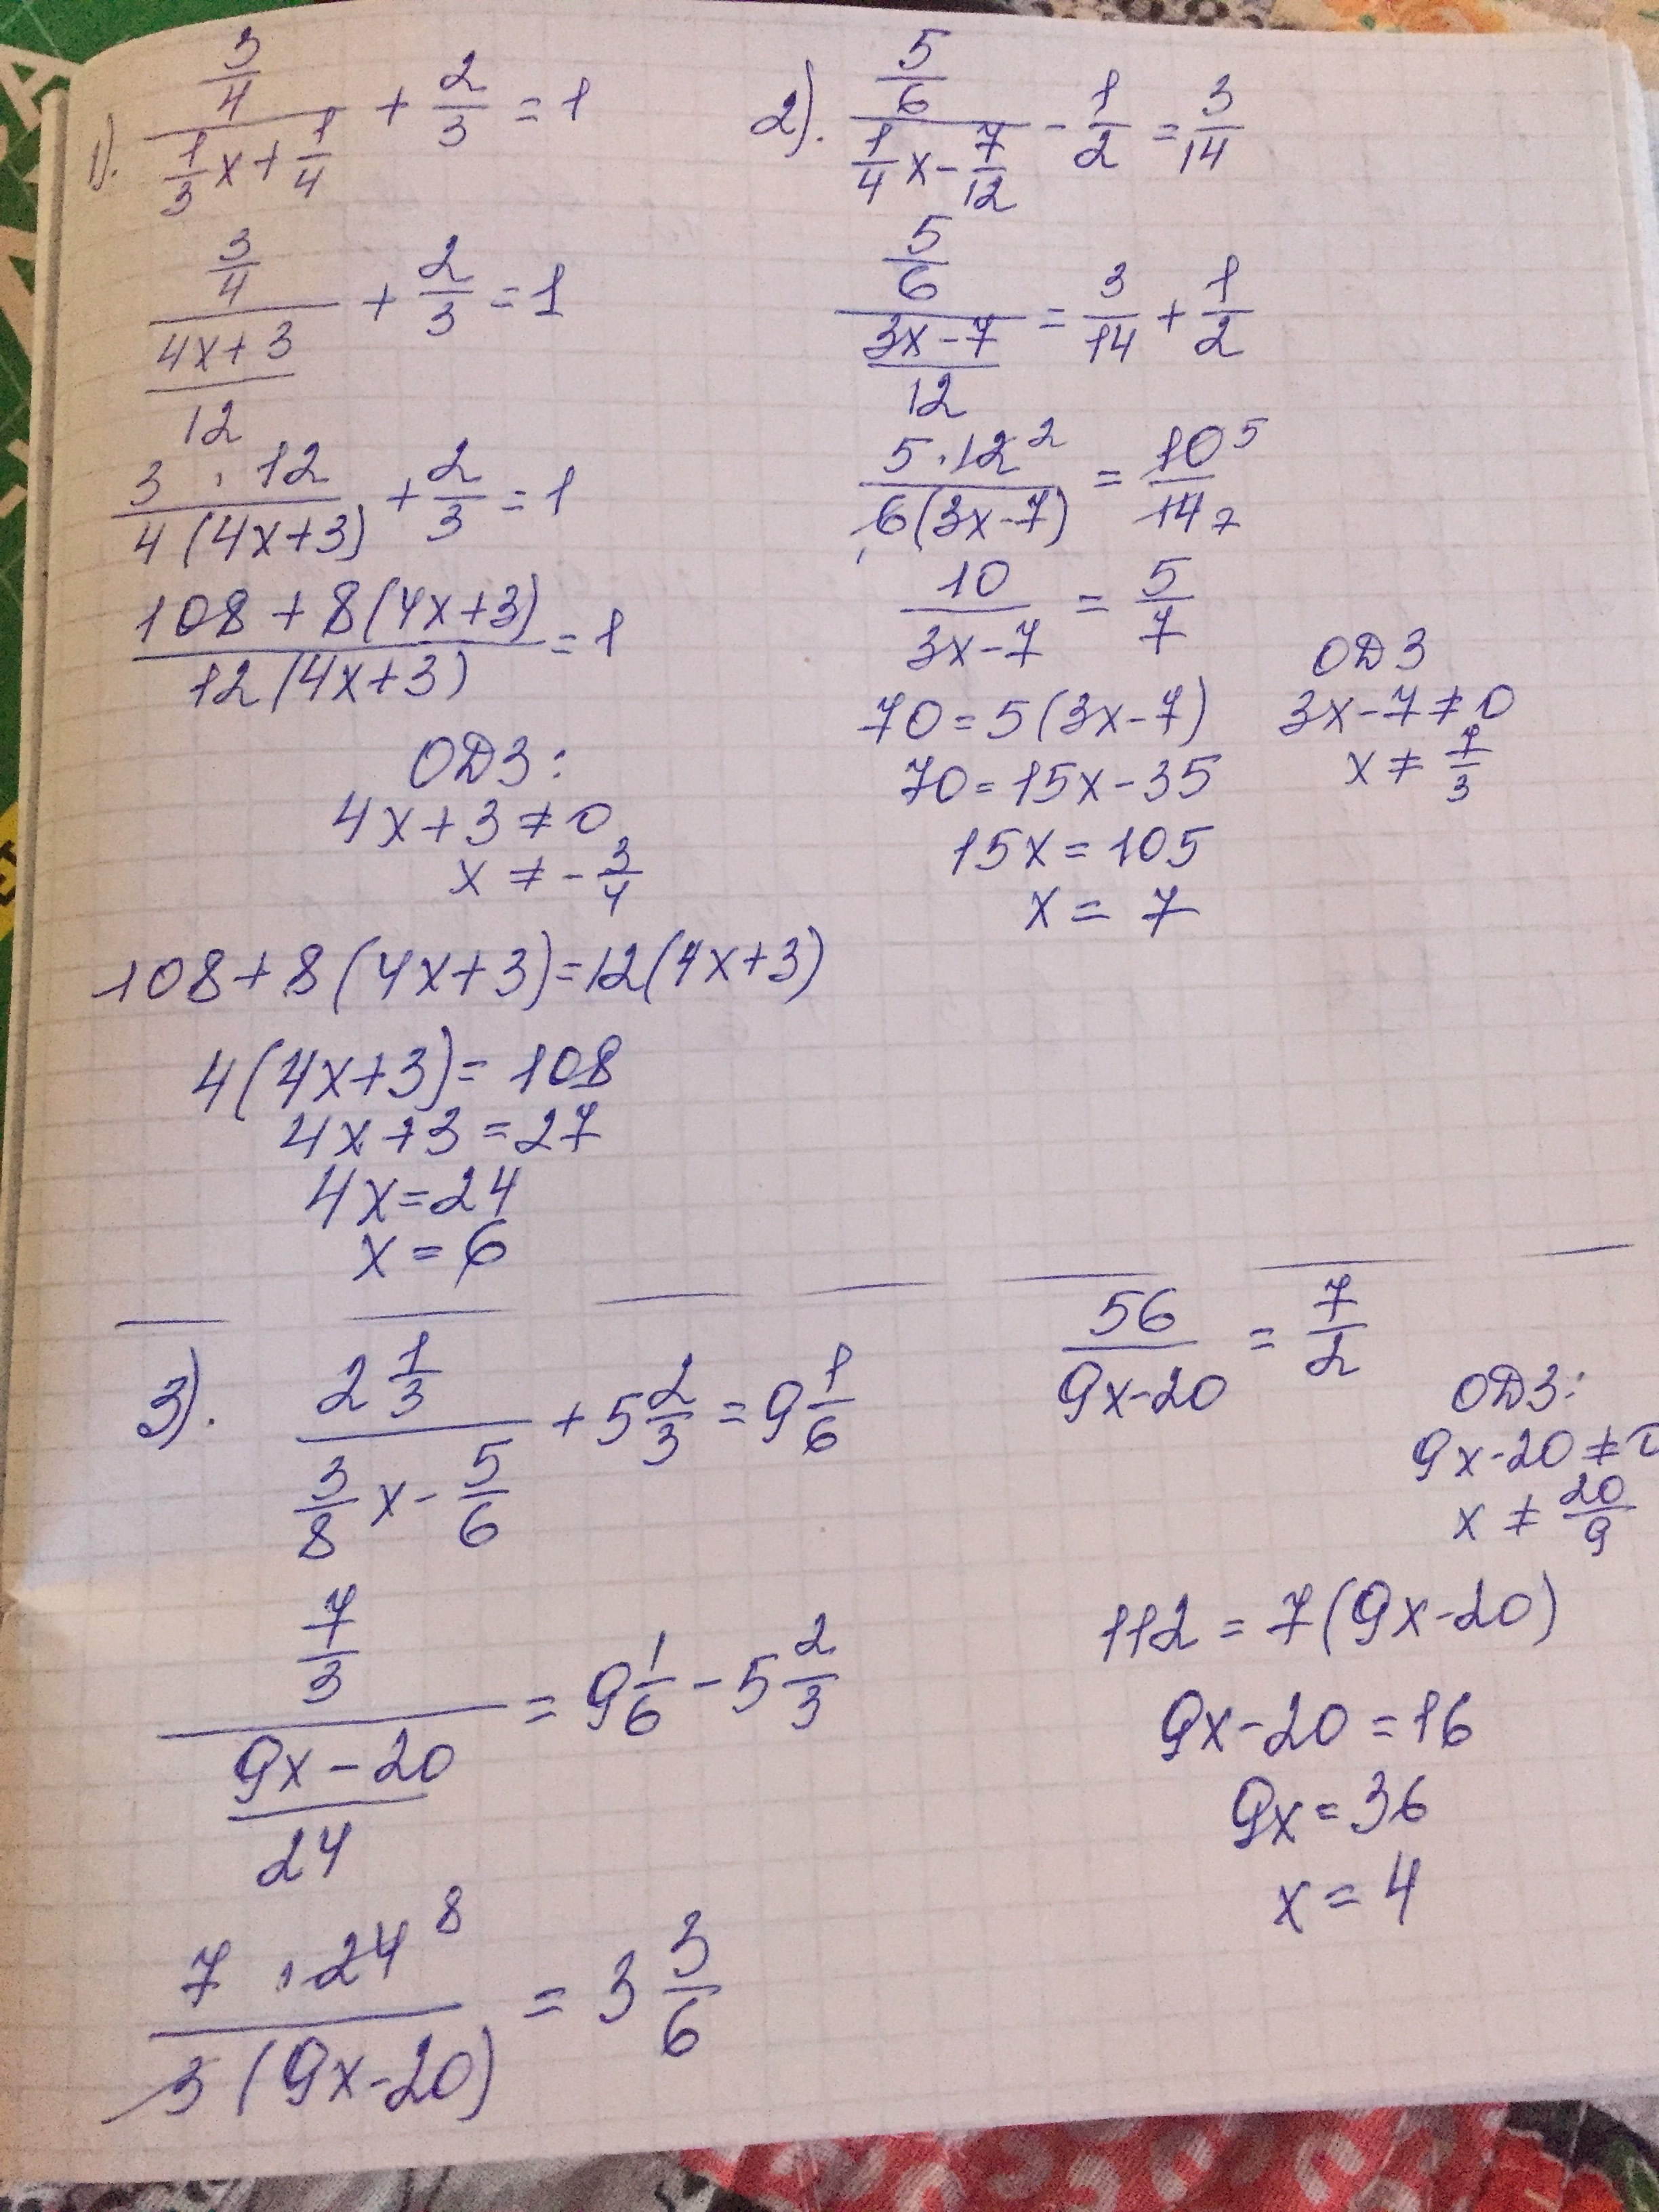 1). (3/4)/(1/3 x + 1/4) + 2/3 = 1
(3/4)/((4x+3)/12) + 2/3 = 1
(3 · 12)/(4(4x+3)) + 2/3 = 1
(108 + 8(4x+3))/(12(4x+3)) = 1
ОДЗ:
4x+3 ≠ 0
x ≠ -3/4
108 + 8(4x+3) = 12(4x+3)
4(4x+3) = 108
4x+3 = 27
4x = 24
x = 6
2). (5/6)/(1/4 x - 7/12) - 1/2 = 3/14
(5/6)/((3x-7)/12) = 3/14 + 1/2
(5 · 12 2)/(1 6(3x-7)) = 10 5/14 7
10/(3x-7) = 5/7
ОДЗ
3x-7 ≠ 0
x ≠ 7/3
70 = 5(3x-7)
70 = 15x - 35
15x = 105
x = 7
3). (2 1/3)/(3/8 x - 5/6) + 5 2/3 = 9 1/6
(7/3)/((9x-20)/24) = 9 1/6 - 5 2/3
(7 · 24 8)/(3(9x-20)) = 3 3/6
56/(9x-20) = 7/2
ОДЗ:
9x-20 ≠ 0
x ≠ 20/9
112 = 7(9x-20)
9x-20 = 16
9x = 36
x = 4